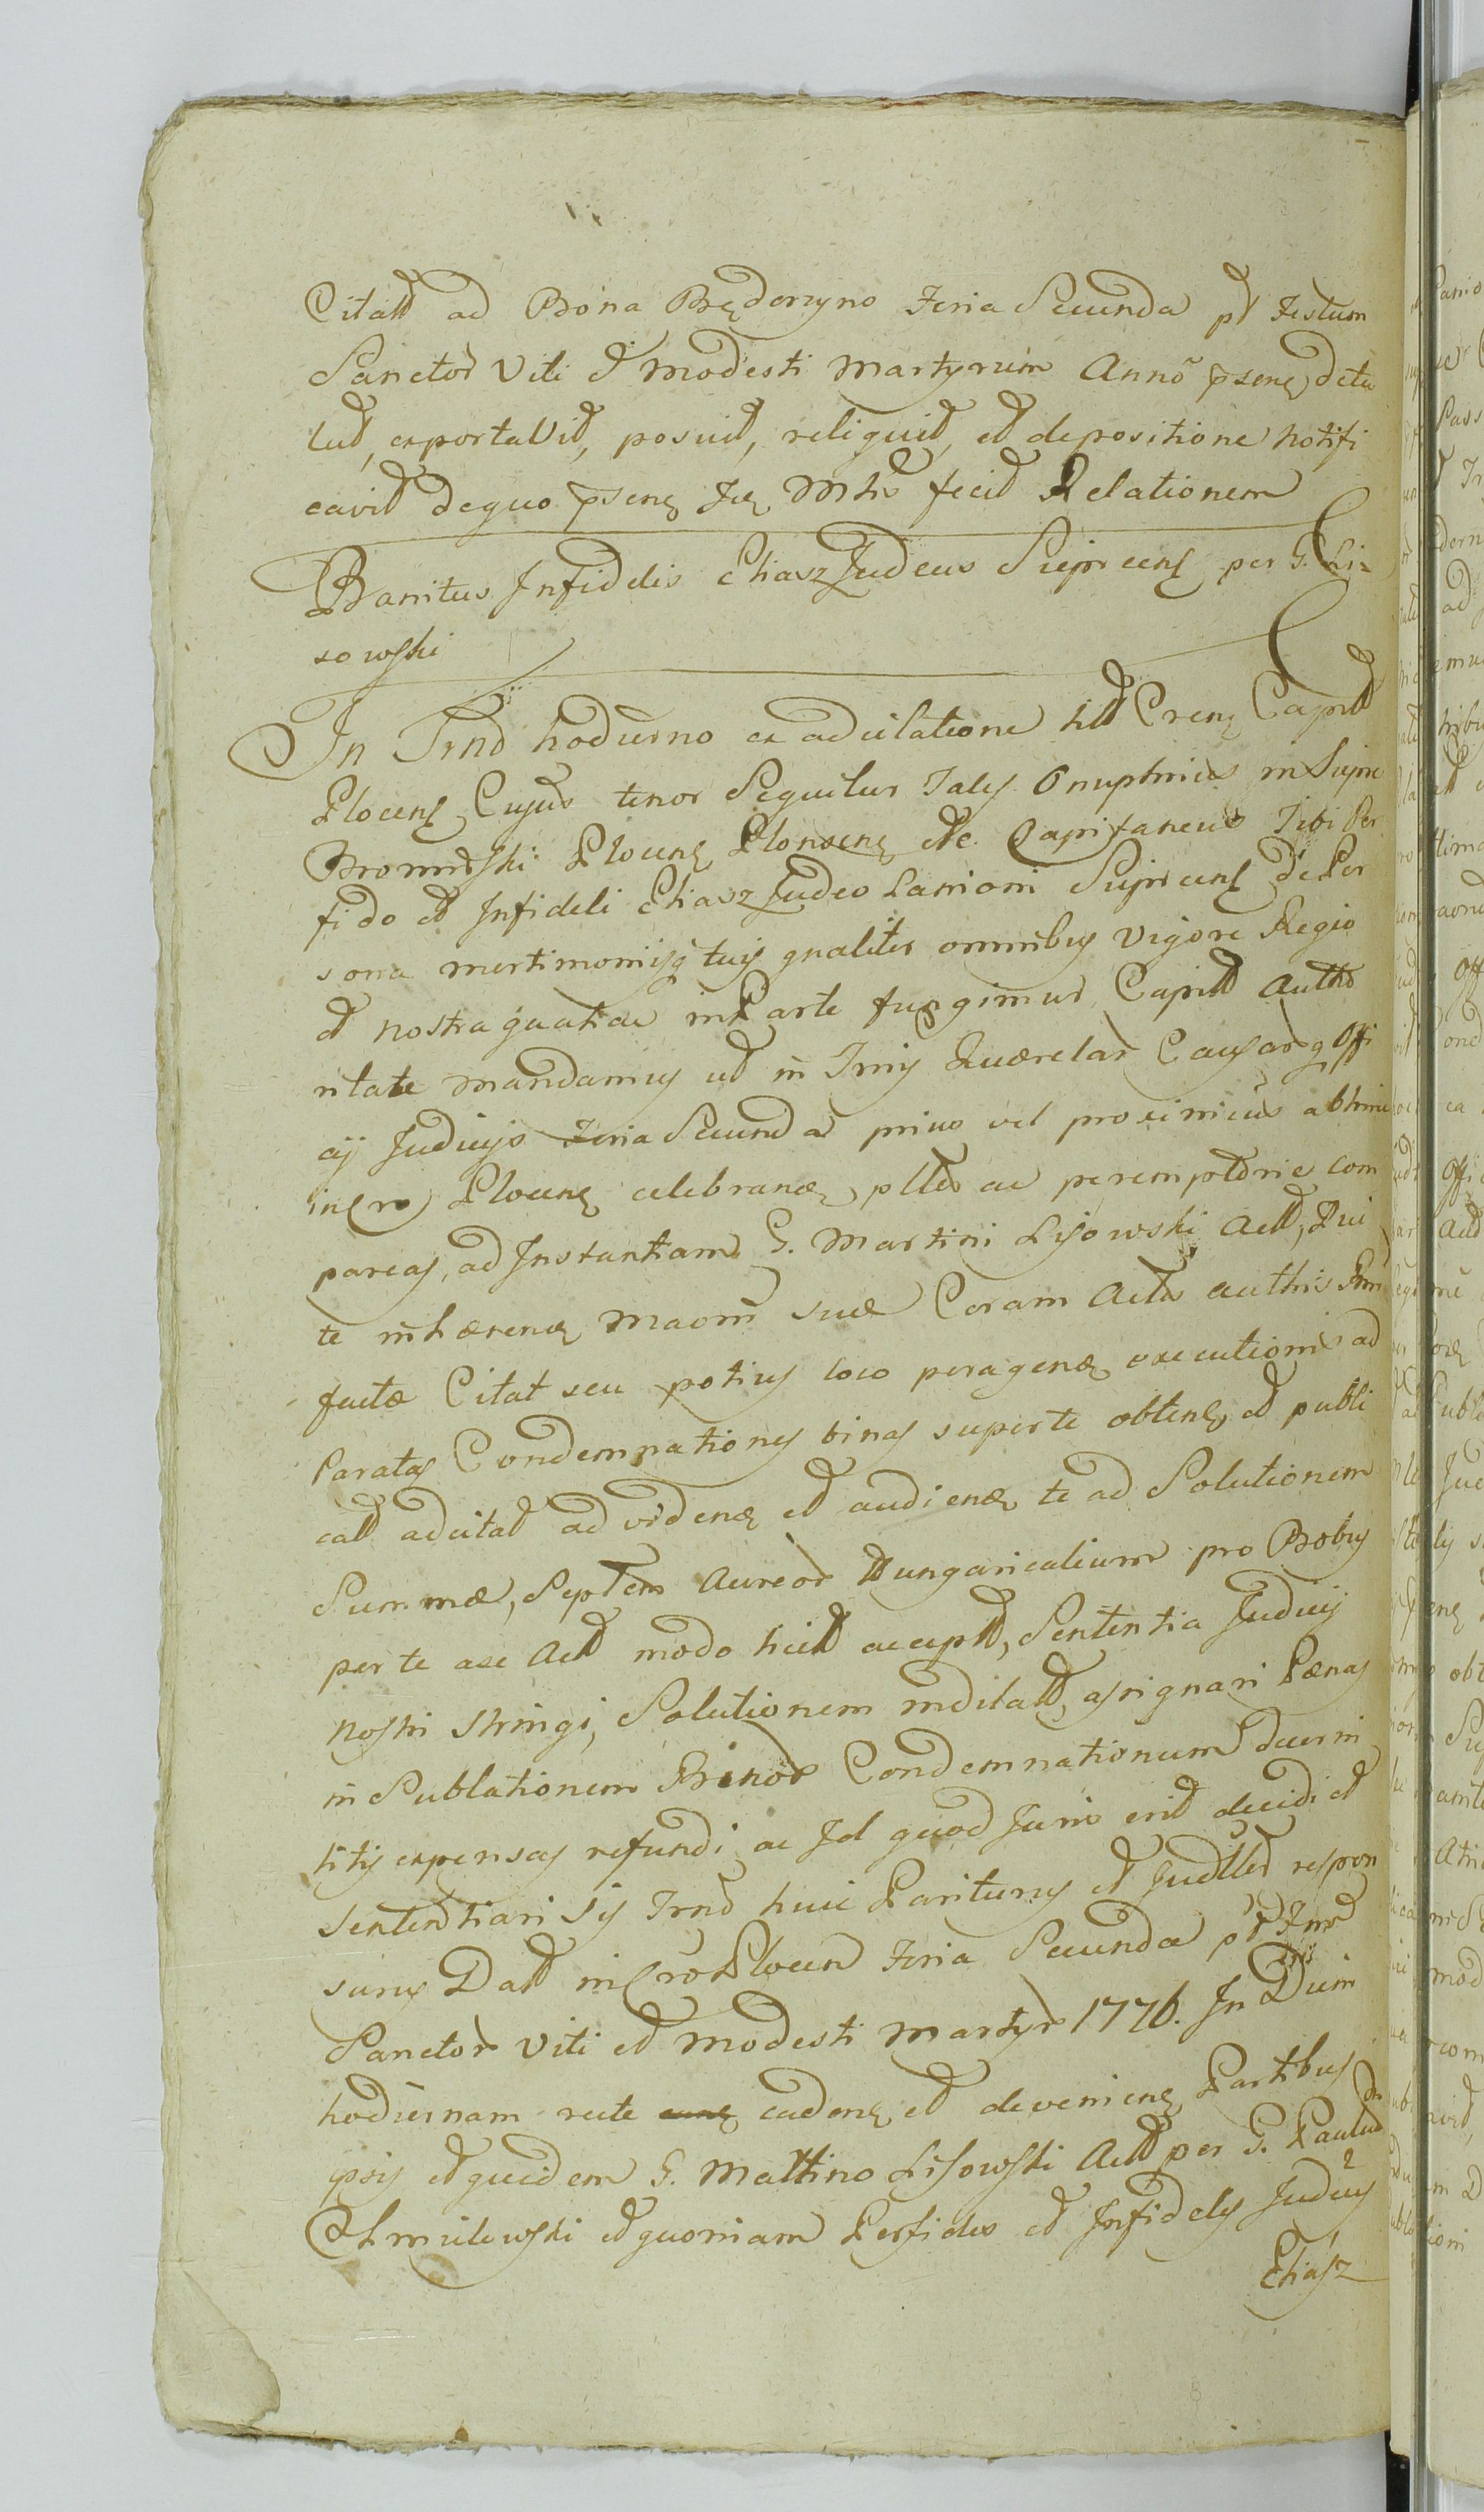 Citatt ad Bona Będorzyno Feria Secunda pt Festum
Sanctor Viti et Modesti Martyrum Anno psenę detu
lut, exportavit, posuit, reliquit, et depositione notifi
cavit de quo psenę Jcę Mtri fecit Relationem
Banitus Infidelis Eliasz Judeus Sieprcenſ per G. Li-
sowſki
In Trno hodierno ex adcitatione litt Crenę Capitt
Plocenſ Cujus tenor Sequitur Talis Onuphrius in Siepre
Bromirſki Plocenę Plonscenę etc. Capitaneus Tibi Per
fido et Infideli Eliasz Judeo Lanioni Sieprcenſ de Per
sona mertimonijsq tuis gnaliter omnibus vigore Regio
et nostra qua hac in Parte fungimur, Capitt Autho
ritate mandamus ut in Trnis Quærelar Causarq Offi
cij Judicijs Feria Secunda prius vel proximius abhinc
in Cro Plocenę celebranę pltter ac peremptorie com
pareas, ad Instantiam G. Martini Lisowski Actt, Qui
te inhærenę Maom suæ Coram Actis authis Pmi
factæ Citat seu potius loco peragenę executionis ad
Paratas Condemnationes binas super te obtenę et publi
catt adcitat ad videnę et audienę te ad Solutionem
Summæ, Septem Aureor Hungaricalium pro Bobus
per te ase Actt modo licitt acceptt, Sententia Judicij
nostri stringi, Solutionem inditatt, assignari Pænas
in Sublationem Binor Condemnationum decerni
litis expensas refundi ac Id quod Juris erit decidi et
sententiari sis Trno huic Pariturus et Judltter respon
surus Datt in Cro Plocen Feria Secunda pt Fum
Sanctor Viti et Modesti Martyr 1776. In Diem
hodiernam recte cadenę et devenienę Partibus
ipsis et quidem G. Mattino Lisowſki Actt per G. Paulum
Chmielewſki et quoniam Perfidus et Infidelis Judeus
Eliasz